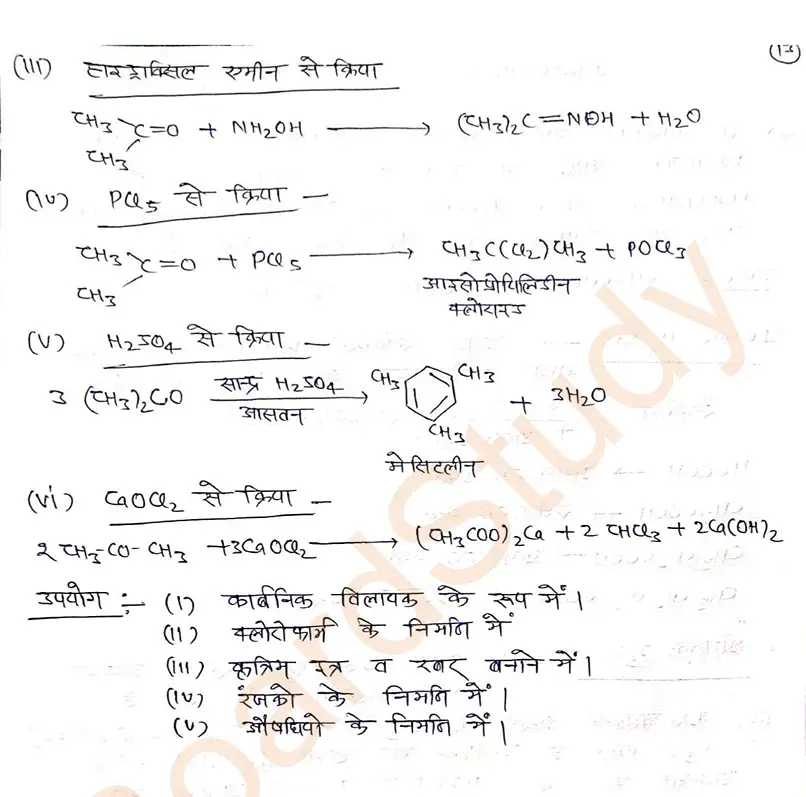 (13)
(III) हाइड्राक्सिल एमीन से क्रिया
CH3
CH3 >C=O + NH2OH ⟶ (CH3)2C=NOH + H2O
(IV) PCl5 से क्रिया –
CH3
CH3 >C=O + PCl5 ⟶ CH3C(Cl2)CH3 + POCl3
आइसोप्रोपिलिडीन
क्लोराइड
(V) H2SO4 से क्रिया –
3 (CH3)2CO सान्द्र H2SO4 आसवन ⟶ CH3 CH3 CH3 + 3H2O
मेसिटलीन
(vi) CaOCl2 से क्रिया –
2 CH3-CO-CH3 + 3CaOCl2 ⟶ (CH3COO)2Ca + 2 CHCl3 + 2Ca(OH)2
उपयोग :- (I) कार्बनिक विलायक के रूप में।
(II) क्लोरोफार्म के निर्माण में
(III) कृत्रिम इत्र व रबर बनाने में।
(IV) रंजको के निर्माण में।
(V) औषधियो के निर्माण में।
oardStudy